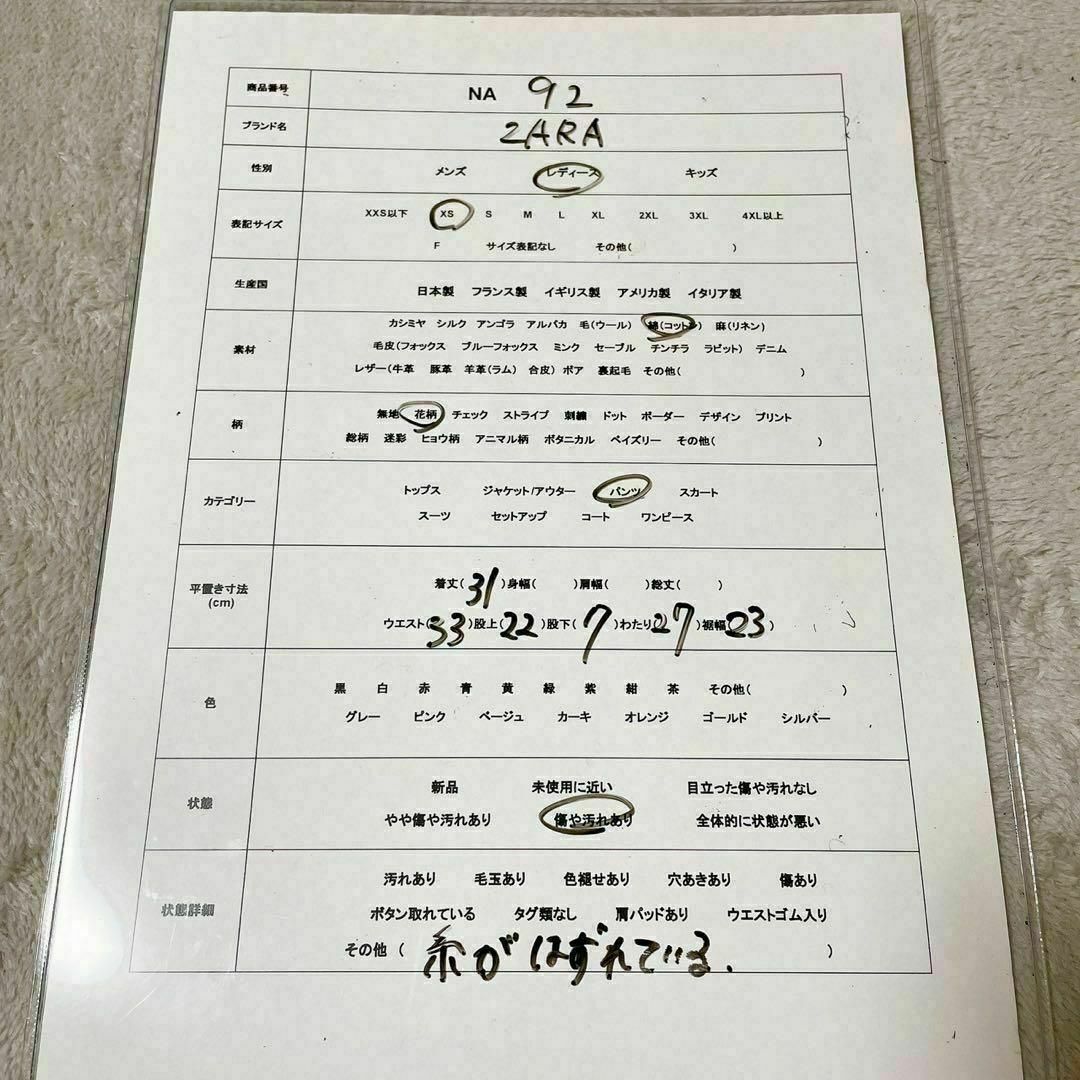 商品番号 NA 92
ブランド名 ZARA
性別 メンズ レディース キッズ
表記サイズ XXS以下 XS S M L XL 2XL 3XL 4XL以上
F サイズ表記なし その他( )
生産国 日本製 フランス製 イギリス製 アメリカ製 イタリア製
素材 カシミヤ シルク アンゴラ アルパカ 毛(ウール) 綿(コットン) 麻(リネン)
毛皮(フォックス ブルーフォックス ミンク セーブル チンチラ ラビット) デニム
レザー(牛革 豚革 羊革(ラム) 合皮) ボア 裏起毛 その他( )
柄 無地 花柄 チェック ストライプ 刺繍 ドット ボーダー デザイン プリント
総柄 迷彩 ヒョウ柄 アニマル柄 ボタニカル ペイズリー その他( )
カテゴリー トップス ジャケット/アウター パンツ スカート
スーツ セットアップ コート ワンピース
平置き寸法 (cm) 着丈(31)身幅( )肩幅( )総丈( )
ウエスト(33)股上(22)股下(7)わたり(27)裾幅(23)
色 黒 白 赤 青 黄 緑 紫 紺 茶 その他( )
グレー ピンク ベージュ カーキ オレンジ ゴールド シルバー
状態 新品 未使用に近い 目立った傷や汚れなし
やや傷や汚れあり 傷や汚れあり 全体的に状態が悪い
状態詳細 汚れあり 毛玉あり 色褪せあり 穴あきあり 傷あり
ボタン取れている タグ類なし 肩パッドあり ウエストゴム入り
その他 ( 糸がはずれている. )